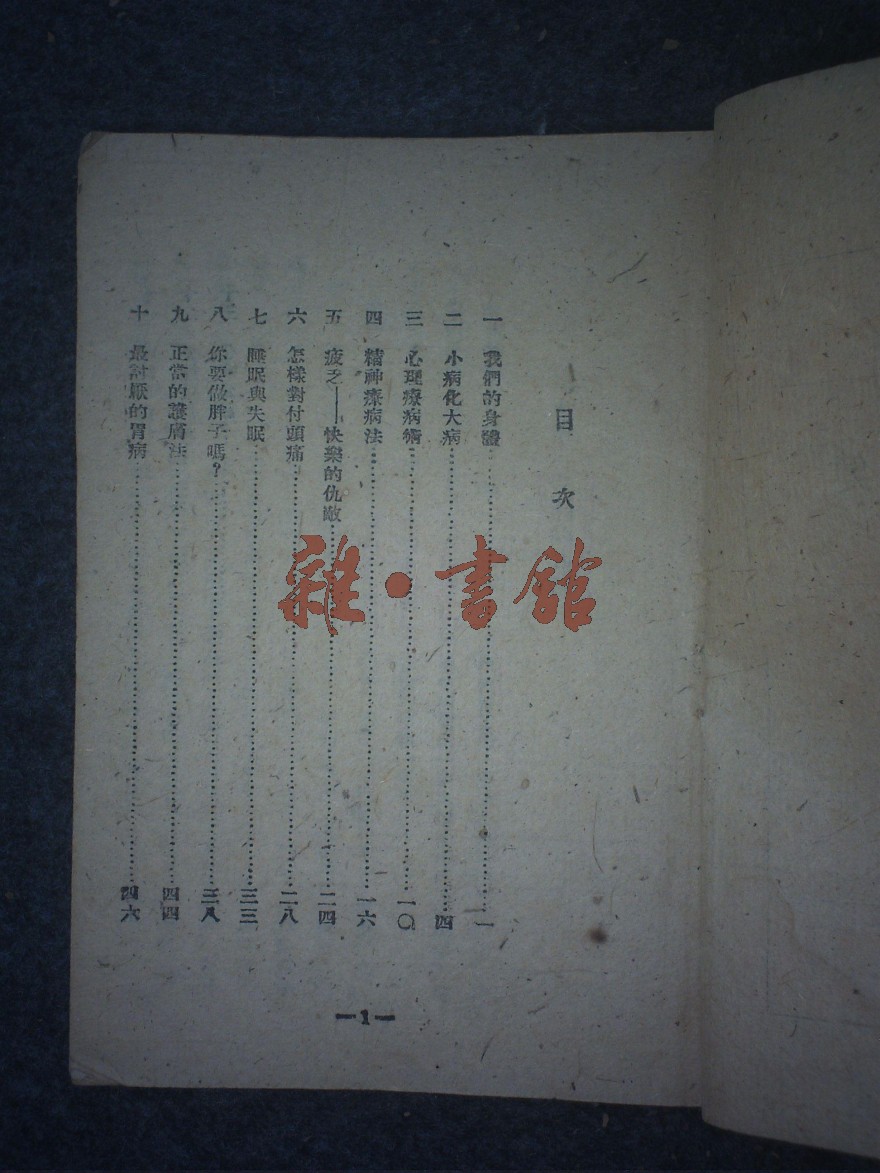 目次
一 我們的身體……一
二 小病化大病……四
三 心理療病術……一〇
四 精神療病法……一六
五 疲乏——快樂的仇敵……二四
六 怎樣對付頭痛……二八
七 睡眠與失眠……三三
八 你要做胖子嗎？……三八
九 正常的護膚法……四四
十 最討厭的胃病……四六
—1—
雜·書館